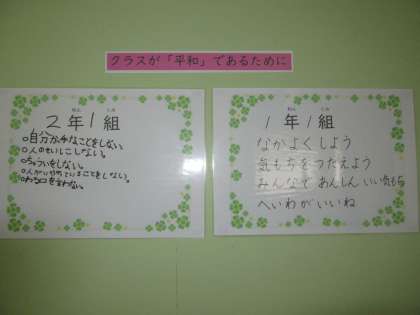 クラスが「平和」であるために
ねん くみ
2年1組
○自分かってなことをしない。
○人のせいにしない。
をしない。
○人がいや ことをしない。
○わる口を言わない。
ねん くみ
1年1組
なかよく しよう
気もちを つたえよう
みんなで あんしん いい気もち
へいわが いいね